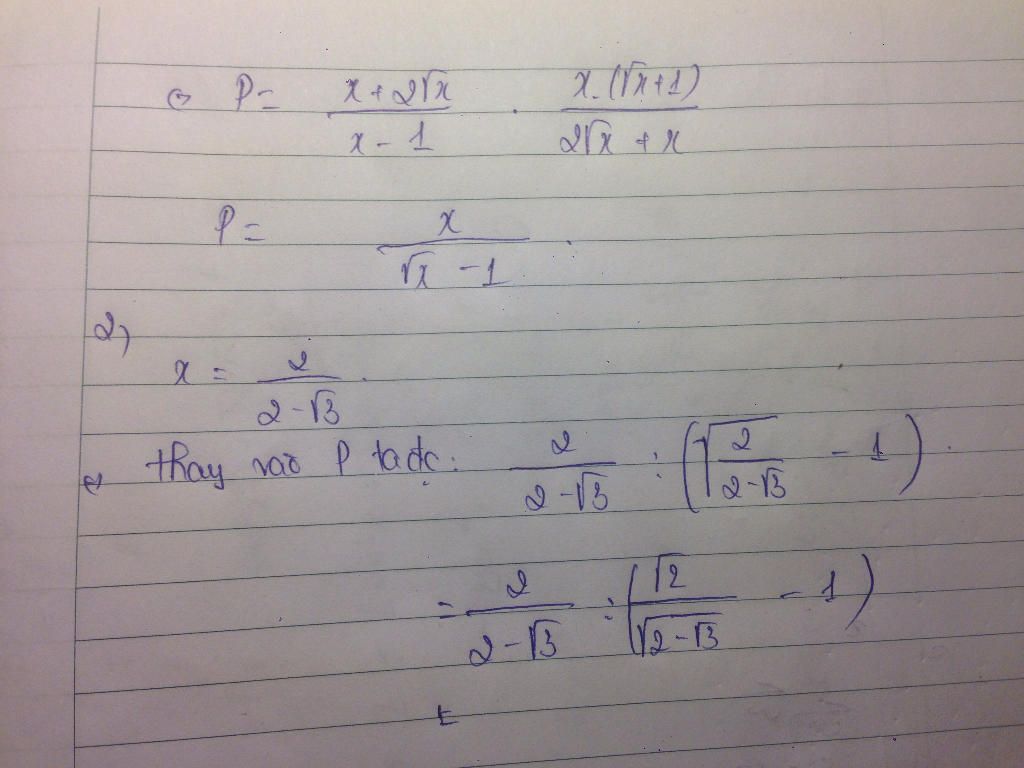 ⇔ P = \frac{x + 2\sqrt{x}}{x - 1} . \frac{x.(\sqrt{x} + 1)}{2\sqrt{x} + x}
P = \frac{x}{\sqrt{x} - 1} .
2)
x = \frac{2}{2 - \sqrt{3}} .
⇔ thay vào P ta đc: \frac{2}{2 - \sqrt{3}} : \left(\sqrt{\frac{2}{2 - \sqrt{3}}} - 1\right) .
= \frac{2}{2 - \sqrt{3}} : \left(\frac{\sqrt{2}}{\sqrt{2 - \sqrt{3}}} - 1\right)